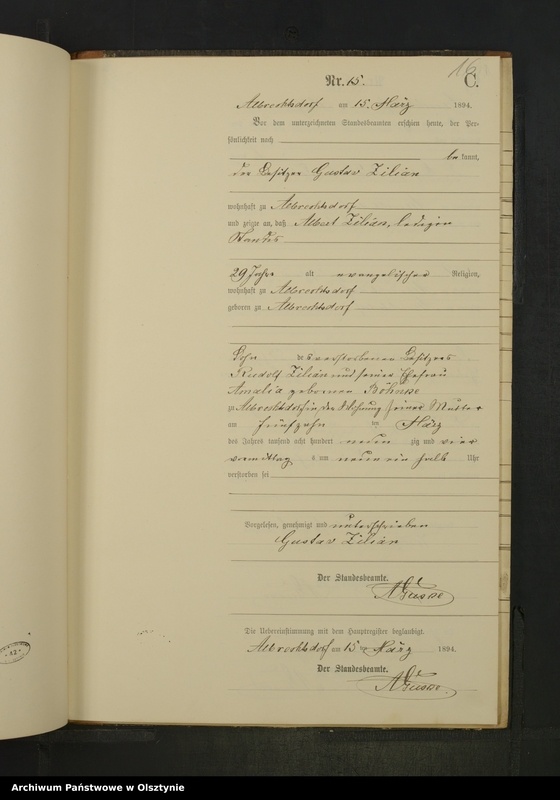 16
Nr. 15.
C.
Albrechtsdorf am 15. März 1894.
Vor dem unterzeichneten Standesbeamten erschien heute, der Per-
sönlichkeit nach
be kannt,
der Besitzer Gustav Zilian
wohnhaft zu Albrechtsdorf
und zeigte an, daß Albert Zilian, ledigen
Standes
29 Jahre alt evangelischer Religion,
wohnhaft zu Albrechtsdorf
geboren zu Albrechtsdorf
Sohn des verstorbenen Besitzers
Rudolf Zilian und seiner Ehefrau
Amalia geborenen
zu Albrechtsdorf in der Wohnung seiner Mutter
am fünfzehn ten März
des Jahres tausend acht hundert neun zig und vier
vormittag s um neun ein halb Uhr
verstorben sei
Vorgelesen, genehmigt und unterschrieben
Gustav Zilian
Der Standesbeamte.
Die Uebereinstimmung mit dem Hauptregister beglaubigt.
Albrechtsdorf am 15 ten März 1894.
Der Standesbeamte.
Archiwum Państwowe w Olsztynie